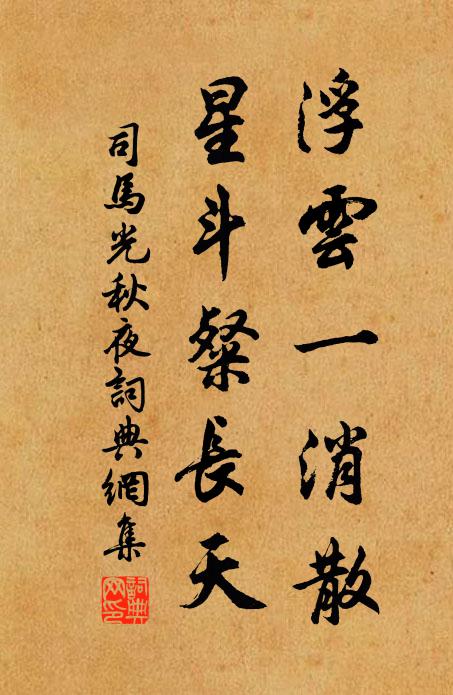 浮雲一消散
星斗粲長天
司馬光秋夜詞典網集
詞典
网印